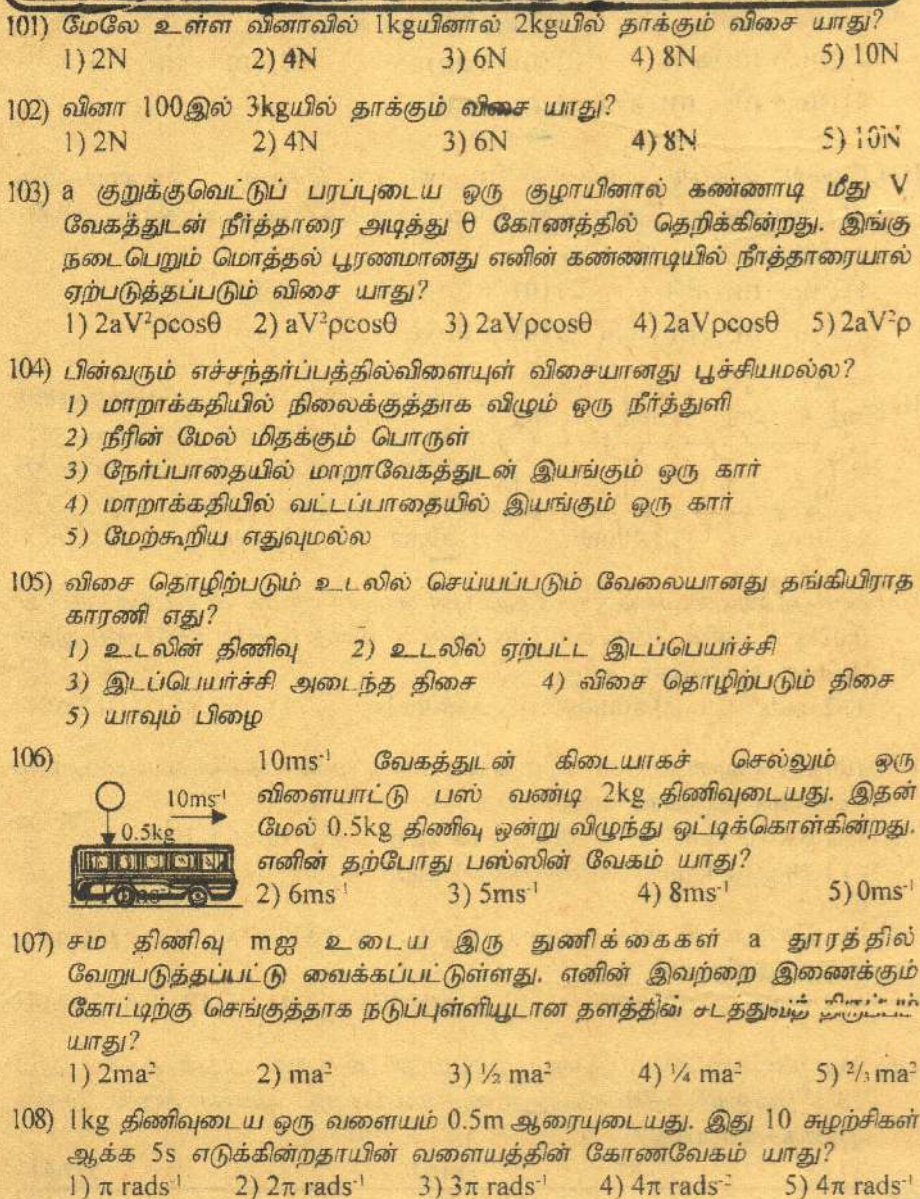 101) மேலே உள்ள வினாவில் 1kgயினால் 2kgயில் தாக்கும் விசை யாது?
1) 2N 2) 4N 3) 6N 4) 8N 5) 10N
102) வினா 100இல் 3kgயில் தாக்கும் விசை யாது?
1) 2N 2) 4N 3) 6N 4) 8N 5) 10N
103) a குறுக்குவெட்டுப் பரப்புடைய ஒரு குழாயினால் கண்ணாடி மீது V
வேகத்துடன் நீர்த்தாரை அடித்து θ கோணத்தில் தெறிக்கின்றது. இங்கு
நடைபெறும் மொத்தல் பூரணமானது எனின் கண்ணாடியில் நீரத்தாரையால்
ஏற்படுத்தப்படும் விசை யாது?
1) 2aV²ρcosθ 2) aV²ρcosθ 3) 2aVρcosθ 4) 2aVρcosθ 5) 2aV²ρ
104) பின்வரும் எச்சந்தர்ப்பத்தில்விளையுள் விசையானது பூச்சியமல்ல?
1) மாறாக்கதியில் நிலைக்குத்தாக விழும் ஒரு நீர்த்துளி
2) நீரின் மேல் மிதக்கும் பொருள்
3) நேர்ப்பாதையில் மாறாவேகத்துடன் இயங்கும் ஒரு கார்
4) மாறாக்கதியில் வட்டப்பாதையில் இயங்கும் ஒரு கார்
5) மேற்கூறிய எதுவுமல்ல
105) விசை தொழிற்படும் உடலில் செய்யப்படும் வேலையானது தங்கியிராத
காரணி எது?
1) உடலின் திணிவு 2) உடலில் ஏற்பட்ட இடப்பெயர்ச்சி
3) இடப்பெயர்ச்சி அடைந்த திசை 4) விசை தொழிற்படும் திசை
5) யாவும் பிழை
106) 10ms⁻¹ வேகத்துடன் கிடையாகச் செல்லும் ஒரு
10ms⁻¹ விளையாட்டு பஸ் வண்டி 2kg திணிவுடையது. இதன்
0.5kg மேல் 0.5kg திணிவு ஒன்று விழுந்து ஒட்டிக்கொள்கின்றது.
எனின் தற்போது பஸ்ஸின் வேகம் யாது?
2) 6ms⁻¹ 3) 5ms⁻¹ 4) 8ms⁻¹ 5) 0ms⁻¹
107) சம திணிவு mஐ உடைய இரு துணிக்கைகள் a தூரத்தில்
வேறுபடுத்தப்பட்டு வைக்கப்பட்டுள்ளது. எனின் இவற்றை இணைக்கும்
கோட்டிற்கு செங்குத்தாக நடுப்புள்ளியூடான தளத்தின் சடத்துவத்
யாது?
1) 2ma² 2) ma² 3) ½ ma² 4) ¼ ma² 5) ²/₃ ma²
108) 1kg திணிவுடைய ஒரு வளையம் 0.5m ஆரையுடையது. இது 10 சுழற்சிகள்
ஆக்க 5s எடுக்கின்றதாயின் வளையத்தின் கோணவேகம் யாது?
1) π rads⁻¹ 2) 2π rads⁻¹ 3) 3π rads⁻¹ 4) 4π rads⁻² 5) 4π rads⁻¹